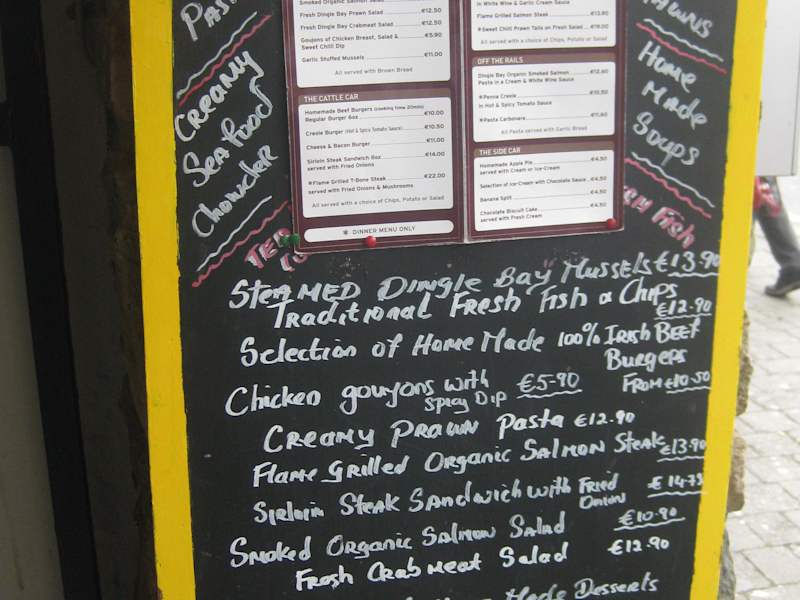 Smoked Organic Salmon Salad
Fresh Dingle Bay Prawn Salad €12.50
Fresh Dingle Bay Crabmeat Salad €12.50
Goujons of Chicken Breast, Salad & €3.90
Sweet Chilli Dip
Garlic Stuffed Mussels €11.00
All served with Brown Bread
THE CATTLE CAR
Homemade Beef Burgers (cooking time 20mins)
Regular Burger 6oz €10.00
Creole Burger (Hot & Spicy Tomato Sauce) €10.50
Cheese & Bacon Burger €11.00
Sirloin Steak Sandwich 8oz €14.00
served with Fried Onions
Flame Grilled T-Bone Steak €22.00
served with Fried Onions & Mushrooms
All served with a choice of Chips, Potato or Salad
DINNER MENU ONLY
in White Wine & Garlic Cream Sauce
Flame Grilled Salmon Steak €13.90
Sweet Chili Prawn Tails on Fresh Salad
All served with a choice of Chips, Potato or Salad
OFF THE RAILS
Dingle Bay Organic Smoked Salmon €12.60
Pasta in a Cream & White Wine Sauce
Penne Creole €10.50
in Hot & Spicy Tomato Sauce
Pasta Carbonara €11.60
All Pasta served with Garlic Bread
THE SIDE CAR
Homemade Apple Pie €4.50
served with Cream or Ice-Cream
Selection of Ice-Cream with Chocolate Sauce €4.50
Banana Split €4.50
Chocolate Biscuit Cake €4.50
served with Fresh Cream
Creamy
Seafood
Chowder
Home
Made
Soups
Fish
STEAMED Dingle Bay Mussels €13.90
Traditional Fresh Fish & Chips
€12.90
Selection of Home Made 100% Irish Beef
Burgers
From €10.50
Chicken goujons with €5-90
Spicy Dip
Creamy Prawn Pasta €12.90
Flame Grilled Organic Salmon Steak €13.90
Sirloin Steak Sandwich with Fried €14.75
Onion
Smoked Organic Salmon Salad €10.90
Fresh Crab Meat Salad €12.90
Made Desserts